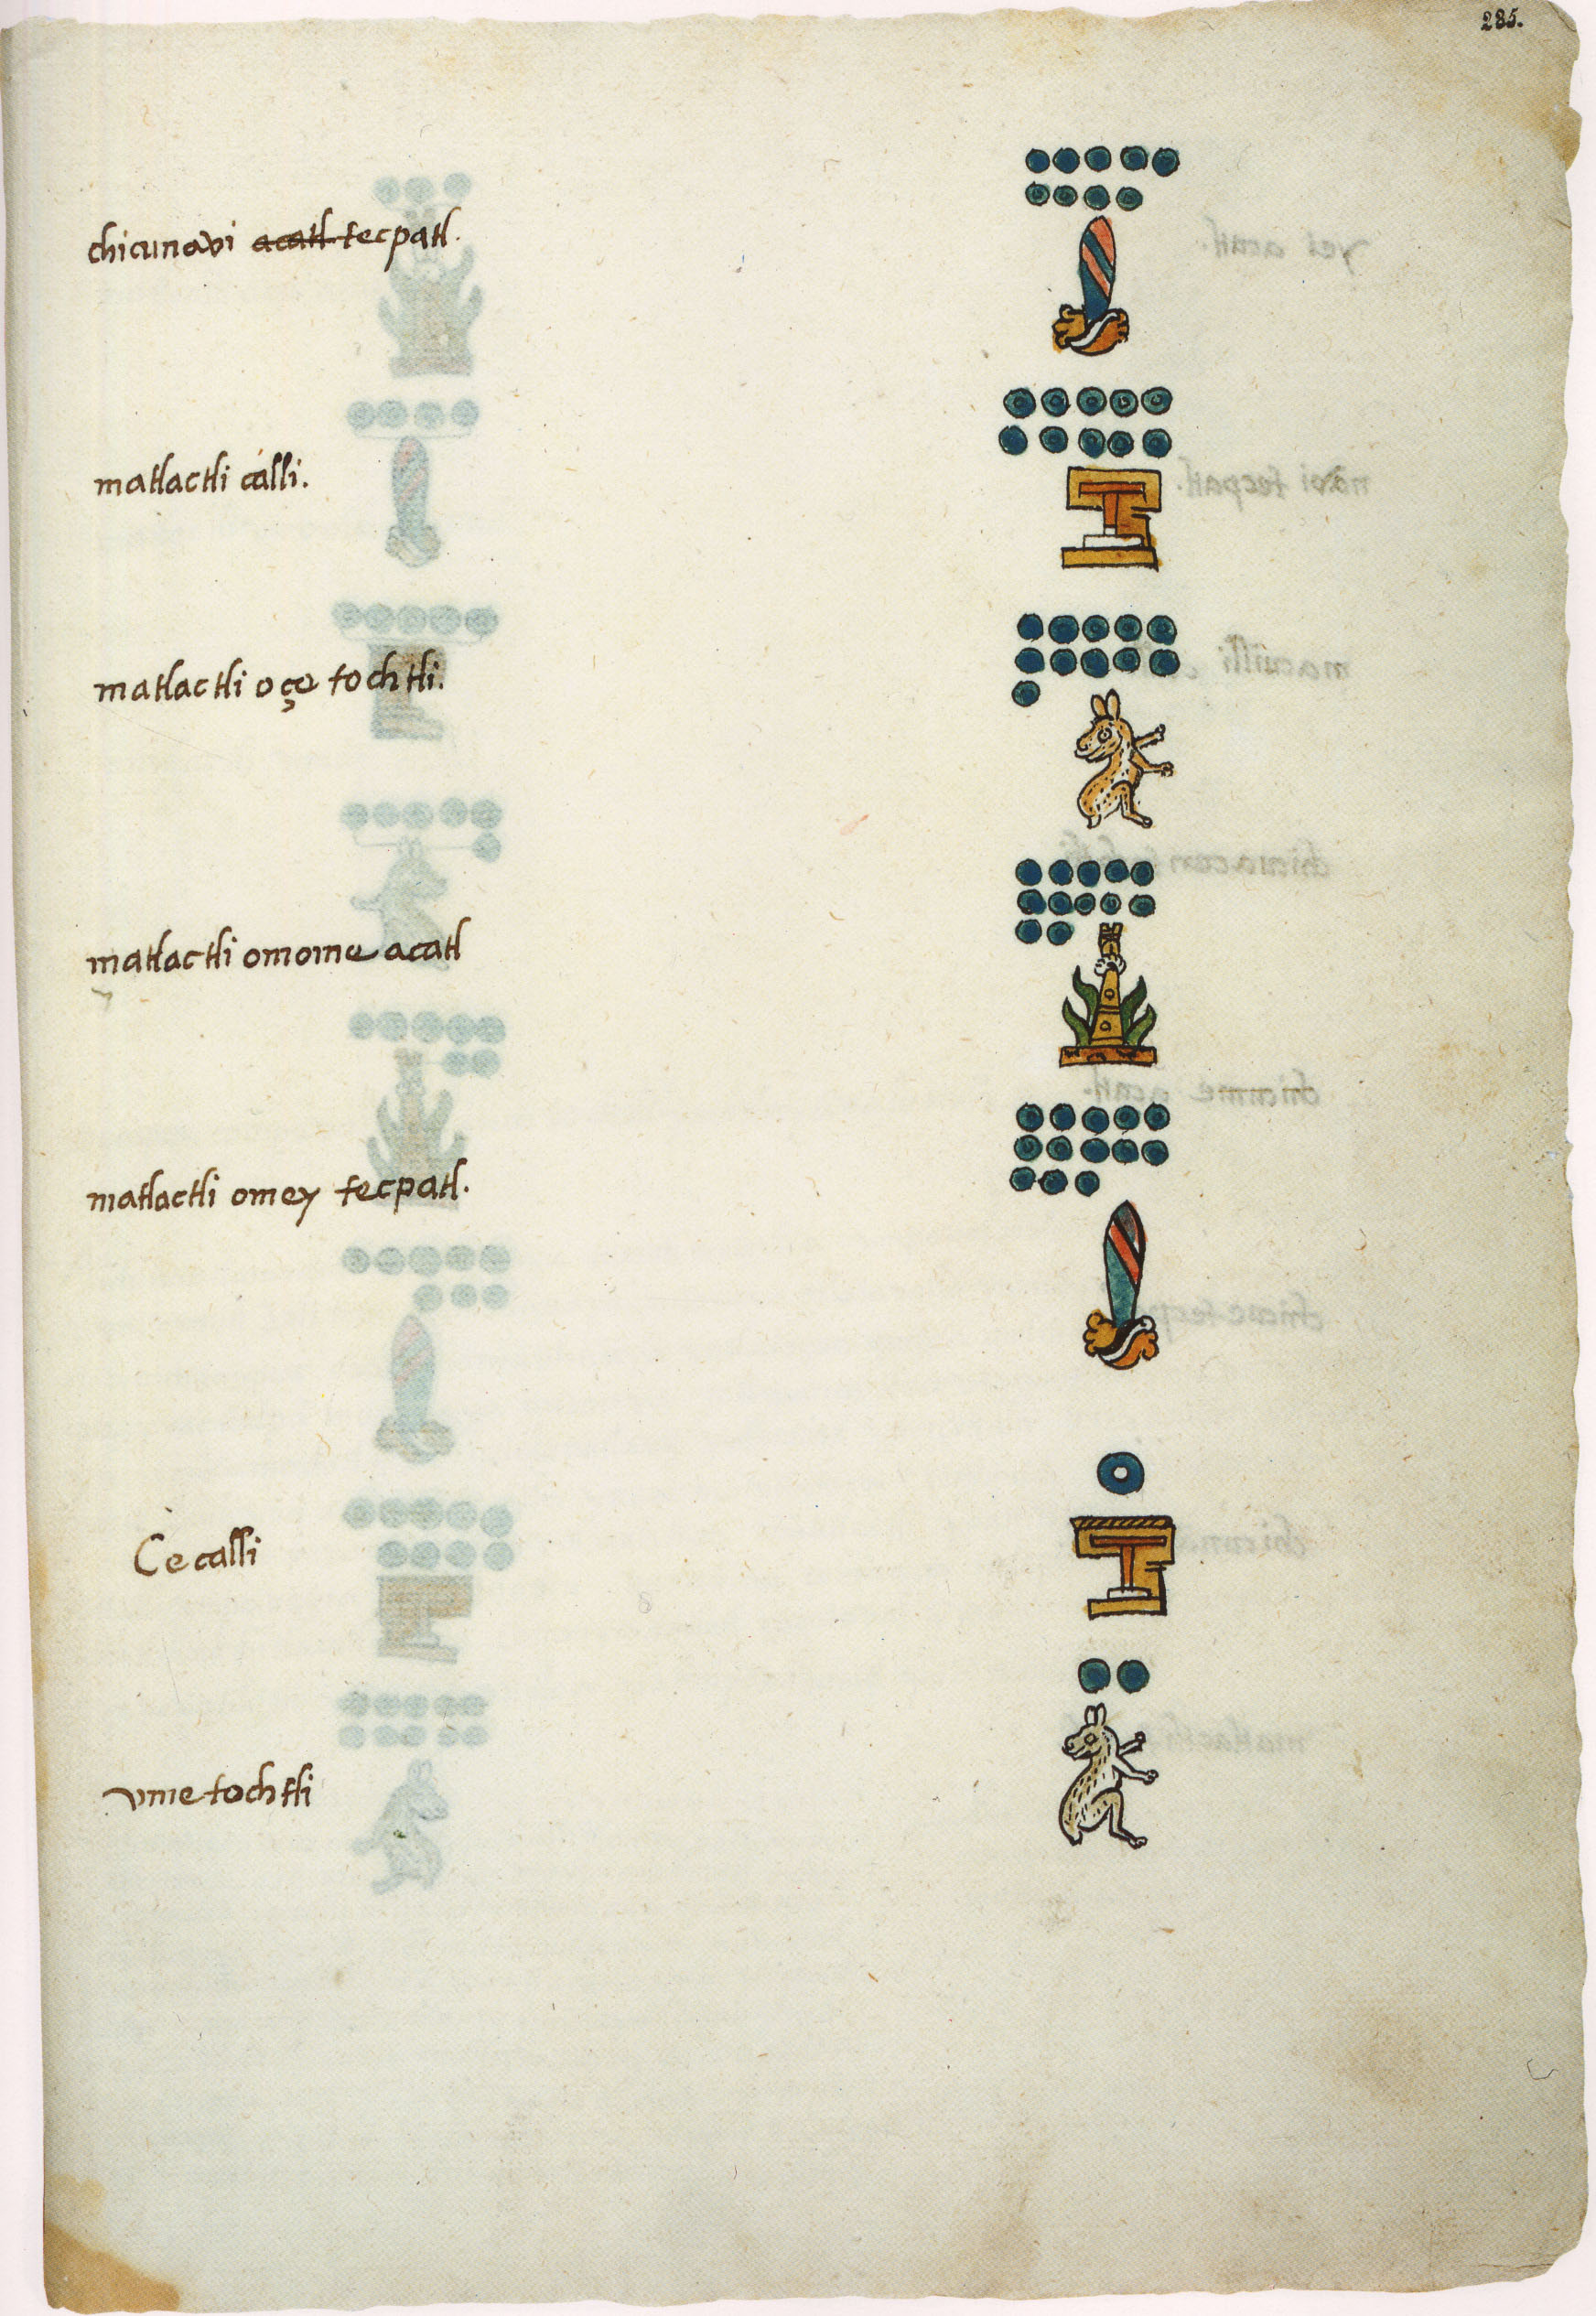 285.
chicunavi acatl tecpatl.
matlactli calli.
matlactli oçe tochtli.
matlactli omome acatl
matlactli omey tecpatl.
Ce calli
vme tochtli